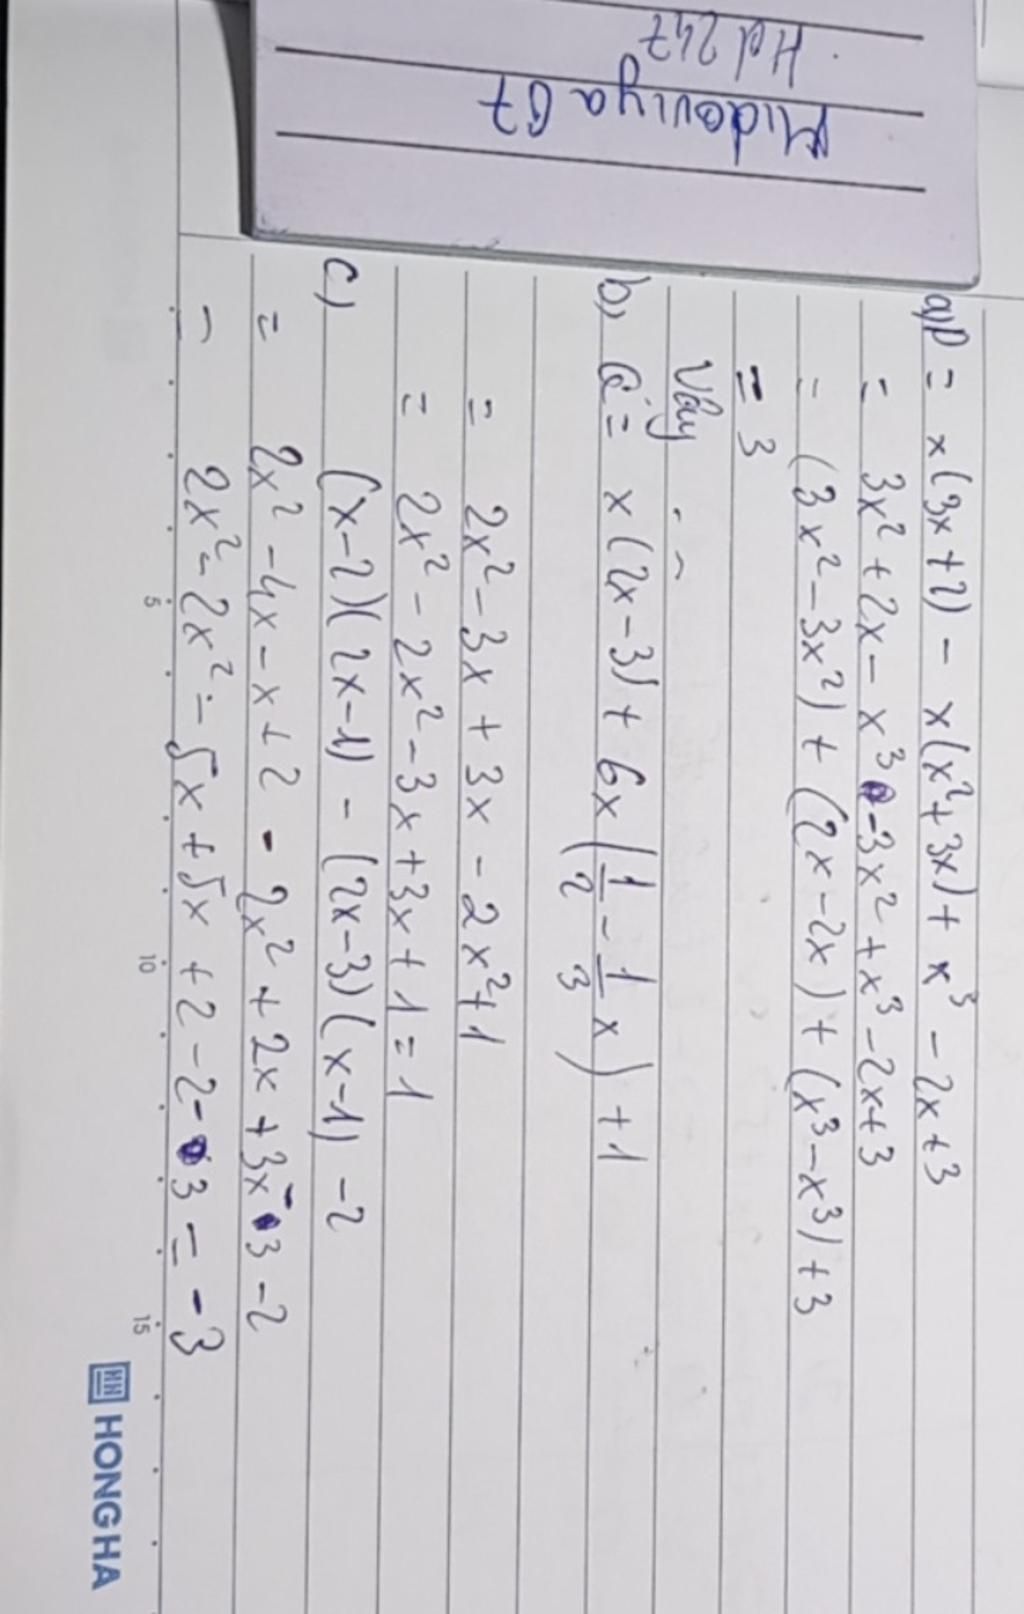 Hd 247
Midoriya 67
a) P = x(3x+2) - x(x²+3x) + x³ - 2x+3
= 3x² + 2x - x³ - 3x² + x³ - 2x+3
= (3x² - 3x²) + (2x - 2x) + (x³ - x³) + 3
= 3
Vậy
b) Q = x(2x-3) + 6x(1/2 - 1/3 x) + 1
= 2x² - 3x + 3x - 2x² + 1
= 2x² - 2x² - 3x + 3x + 1 = 1
c) (x-2)(2x-1) - (2x-3)(x-1) - 2
= 2x² - 4x - x + 2 - 2x² + 2x + 3x - 3 - 2
= 2x² - 2x² - 5x + 5x + 2 - 2 - 3 = -3
5 10 15
HONG HA